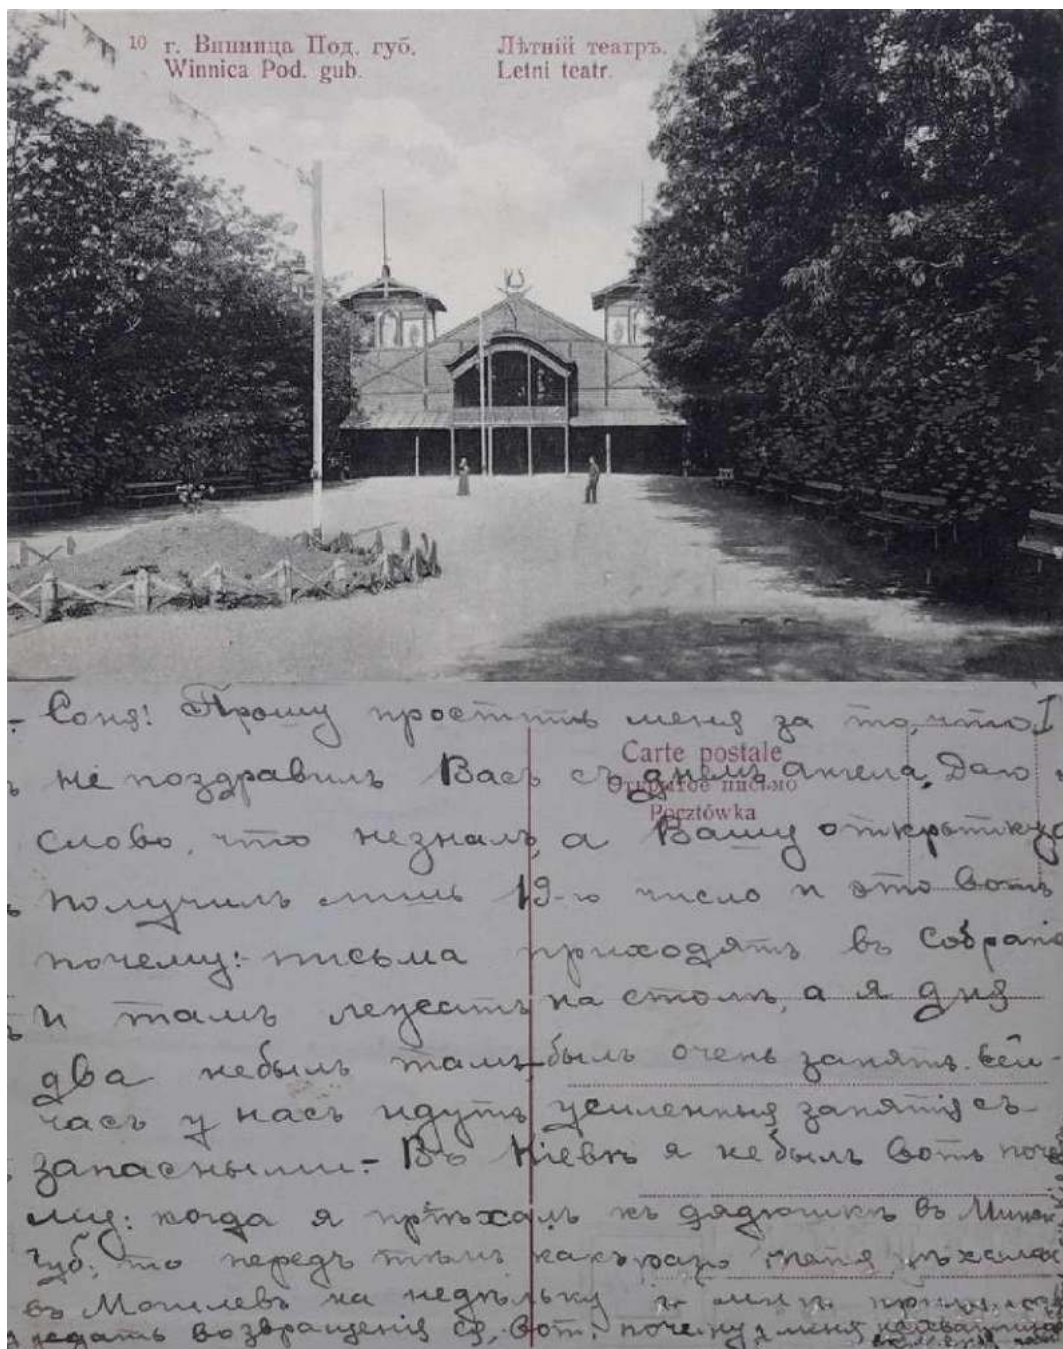 10 г. Винница Под. губ.
Winnica Pod. gub.
Лѣтній театръ.
Letni teatr.
Carte postale
Открытое письмо
Pocztówka
Соня! Прошу простить меня за то, что
не поздравилъ Васъ съ днемъ ангела. Даю
слово, что незналъ, а Вашу открытку
получилъ лишь 19-го число и это вотъ
почему:- письма приходятъ въ Собраніе
и тамъ лежатъ на столѣ, а я дня
два небылъ тамъ-былъ очень занятъ. Сей-
часъ у насъ идутъ усиленныя занятія съ
запасными.- Въ Кіевѣ я небылъ вотъ поче
му: когда я пріѣхалъ къ дядюшкѣ въ Минск.
губ., то передъ тѣмъ какъразъ уѣхала
въ Могилевъ на недѣльку и мнѣ пришлось
ждать возвращенія ея, вотъ почему у меня